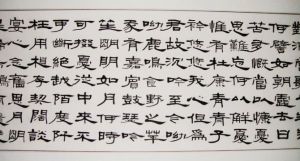 何譬如朝露去日
苦多慨當以慷憂
思難忘何以解憂
惟有杜康青青子
衿悠悠我心但為
君故沈吟至今呦
呦鹿鳴食野之苹
我有嘉賓鼓瑟吹
笙明明如月何時
可掇憂從中來不
可斷絕越陌度阡
枉用相存契闊談
宴心念舊恩月明